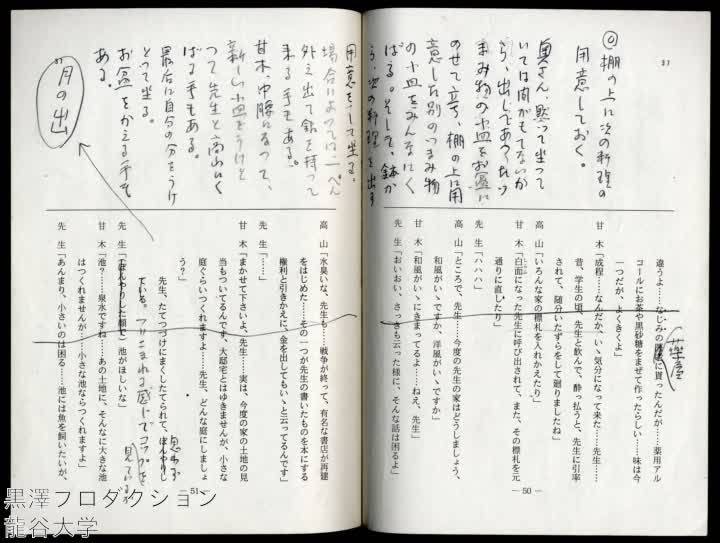 37
◎棚の上に次の料理の
用意しておく。
奥さん、黙って坐って
いては間がもてないか
ら、出しであつたつ
まみ物の小皿をお盆に
のせて立ち、棚の上に用
意した別のつまみ物
の小皿をみんなにく
ばる。そして、鉢か
ら、次の料理を出す
違うよ……なじみの
に貰ったんだが……薬用アル
コールにお茶や黒砂糖をまぜて作ったらしい……味は今
一つだが、よくきくよ」
薬屋
甘 木「成程……なんだか、いゝ気分になって来た……先生……
昔、学生の頃、先生と飲んで、酔っ払うと、先生に引率
されて、随分いたずらをして廻りましたね」
高 山「いろんな家の標札を入れかえたり」
甘 木「白面になった先生に呼び出されて、また、その標札を元
通りに直したり」
先 生「ハハハ」
高 山「ところで、先生……今度の先生の家はどうしましょう、
和風がいゝですか、洋風がいゝですか」
甘 木「和風がいゝにきまってるよ……ねえ、先生」
先 生「おいおい、さっきも云った様に、そんな話は困るよ」
― 50 ―
用意をして坐る。
場合によっては、一ぺん
外え出て鉢を持って
来る手もある。
甘木、中腰になって、
新しい小皿をうけと
って先生と高山にく
ばる手もある。
最后に自分の分をうけ
とって坐る。
お盆をかえる手も
ある。
37
月の出
高 山「水臭いな、先生も……戦争が終って、有名な書店が再建
をはじめた……その一つが先生の書いたものを本にする
権利と引きかえに、金を出してもいゝと云ってるんです」
先 生「……」
甘 木「まかせて下さいよ、先生……実は、今度の家の土地の見
当もついてるんです、大邸宅とはゆきませんが、小さな
庭ぐらいつくれますよ……先生、どんな庭にしましょ
う？」
先生、たてつづけにまくしたてられて、ぼんやりし
ている。
先 生「(ぼんやりした顔で)池がほしいな」
甘 木「池？……泉水ですね……あの土地に、そんなに大きな池
はつくれませんが……小さな池ならつくれますよ」
先 生「あんまり、小さいのは困る……池には魚を飼いたいが、
― 51 ―
黒澤プロダクション
龍谷大学